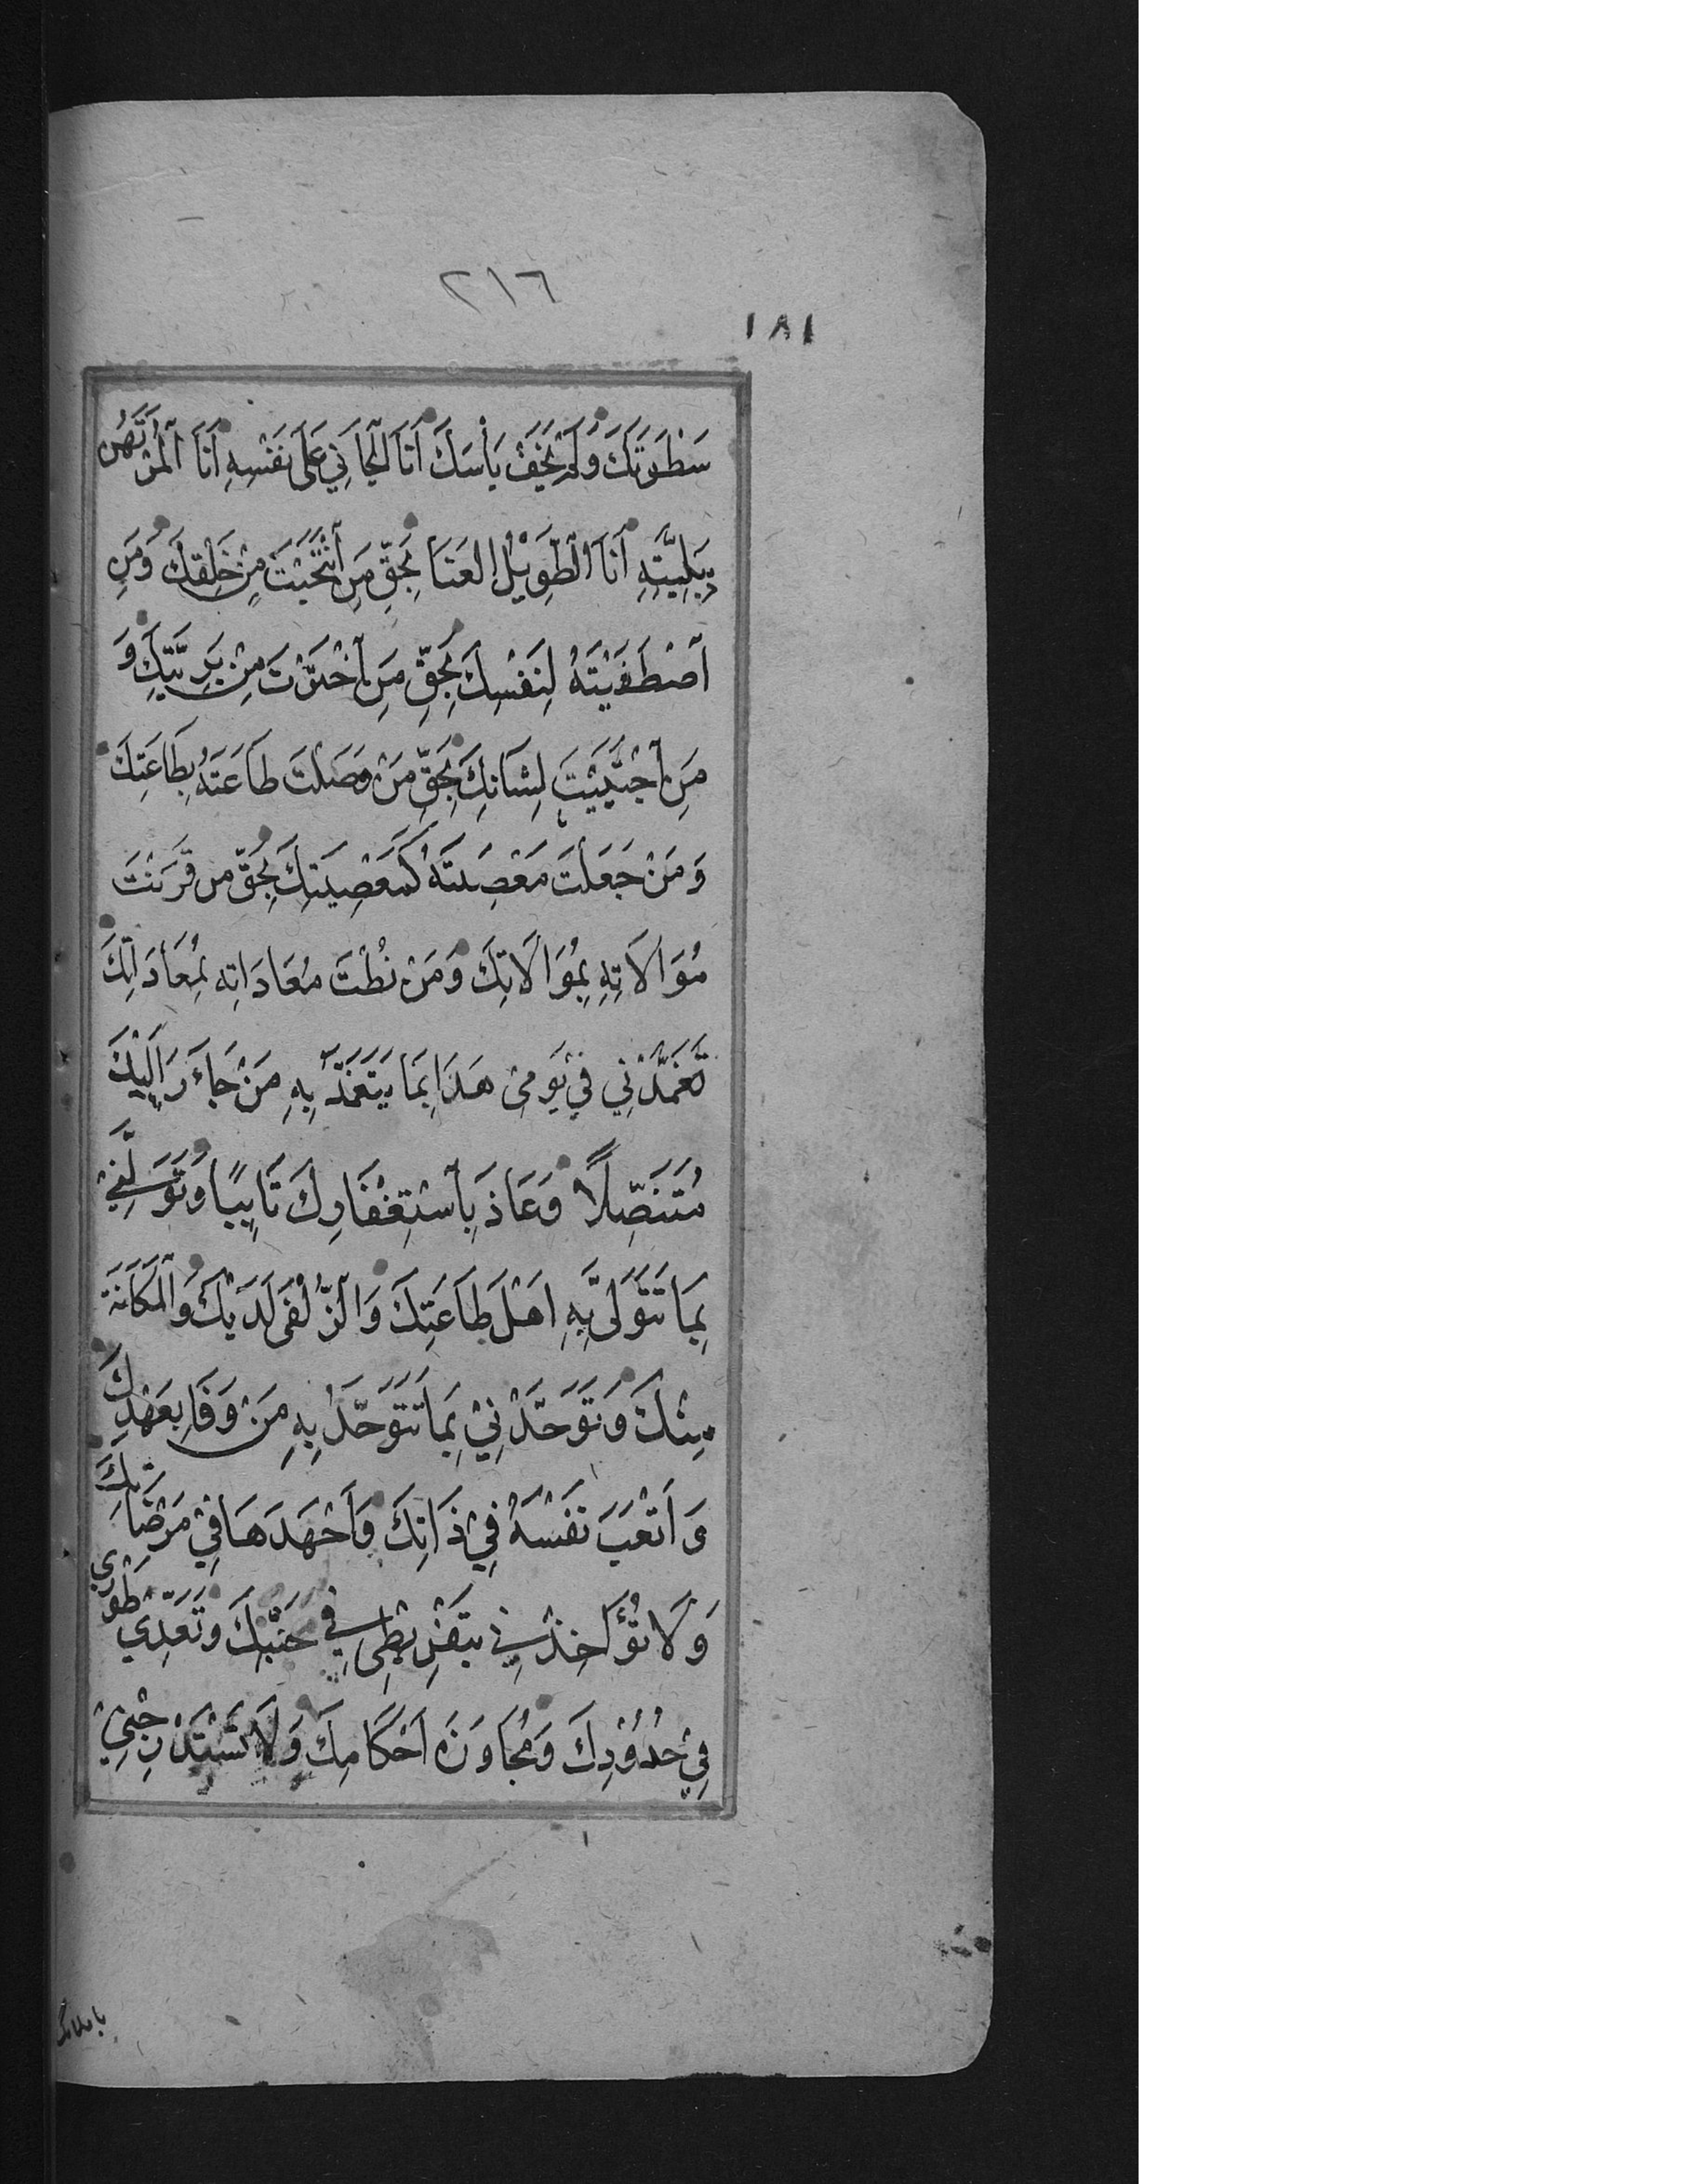 ٢١٦
١٨١
سَطْوَتَكَ وَلَمْ يَخَفْ بَأْسَكَ أَنَا الْجَانِي عَلَى نَفْسِهِ أَنَا الْمُرْتَهَنُ
بِبَلِيَّتِهِ أَنَا الطَّوِيلُ الْعَنَا بِحَقِّ مَنِ انْتَجَبْتَ مِنْ خَلْقِكَ وَمَنِ
اصْطَفَيْتَهُ لِنَفْسِكَ بِحَقِّ مَنِ اخْتَرْتَ مِنْ بَرِيَّتِكَ وَ
مَنِ اجْتَبَيْتَ لِشَانِكَ بِحَقِّ مَنْ وَصَلْتَ طَاعَتَهُ بِطَاعَتِكَ
وَمَنْ جَعَلْتَ مَعْصِيَتَهُ كَمَعْصِيَتِكَ بِحَقِّ مَن قَرَنْتَ
مُوَالَاتِهِ بِمُوَالَاتِكَ وَمَنْ نُطْتَ مُعَادَاتِه بِمُعَادَاتِكَ
تَغَمَّدْنِي فِي يَوْمِي هَذَا بِمَا يَتَغَمَّدُ بِهِ مَنْ جَاءَرَ إِلَيْكَ
مُتَنَصِّلًا وَعَاذَ بِاسْتِغْفَارِكَ تَايِبًا وَتَوَلَّنِي
بِمَا تَتَوَلَّى بِهِ اَهْلَ طَاعَتِكَ وَالزُّلْفَى لَدَيْكَ وَالْمَكَانَةَ
مِنْكَ وَتَوَحَّدْنِي بِمَا تَتَوَحَّدُ بِهِ مَنْ وَفَا بِعَهْدِكَ
وَاَتْعَبَ نَفْسَهُ فِي ذَاتِكَ وَاَجْهَدَهَا فِي مَرْضَاتِكَ
وَلَا تُؤَاخِذْنِي بِتَفْرِيطِي فِي جَنْبِكَ وَتَعَدِّي طَوْرِي
فِي حُدُودِكَ وَمُجَاوَزَه اَحْكَامِكَ وَلَا تَسْتَدْرِجْنِي
باملائك